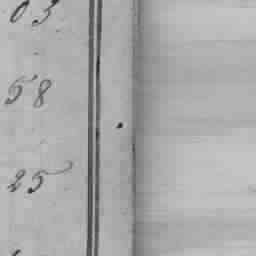 03
58
25